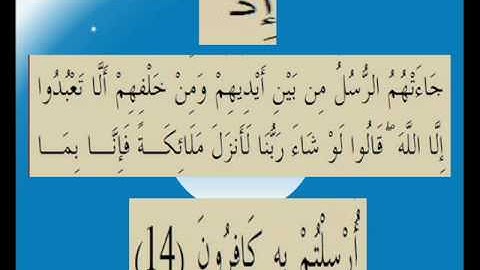 إِذْ
جَاءَتْهُمُ الرُّسُلُ مِن بَيْنِ أَيْدِيهِمْ وَمِنْ خَلْفِهِمْ أَلَّا تَعْبُدُوا
إِلَّا اللَّهَ ۖ قَالُوا لَوْ شَاءَ رَبُّنَا لَأَنزَلَ مَلَائِكَــــةً فَإِنَّـــا بِمَــــا
أُرْسِلْتُمْ بِهِ كَافِرُونَ (14)